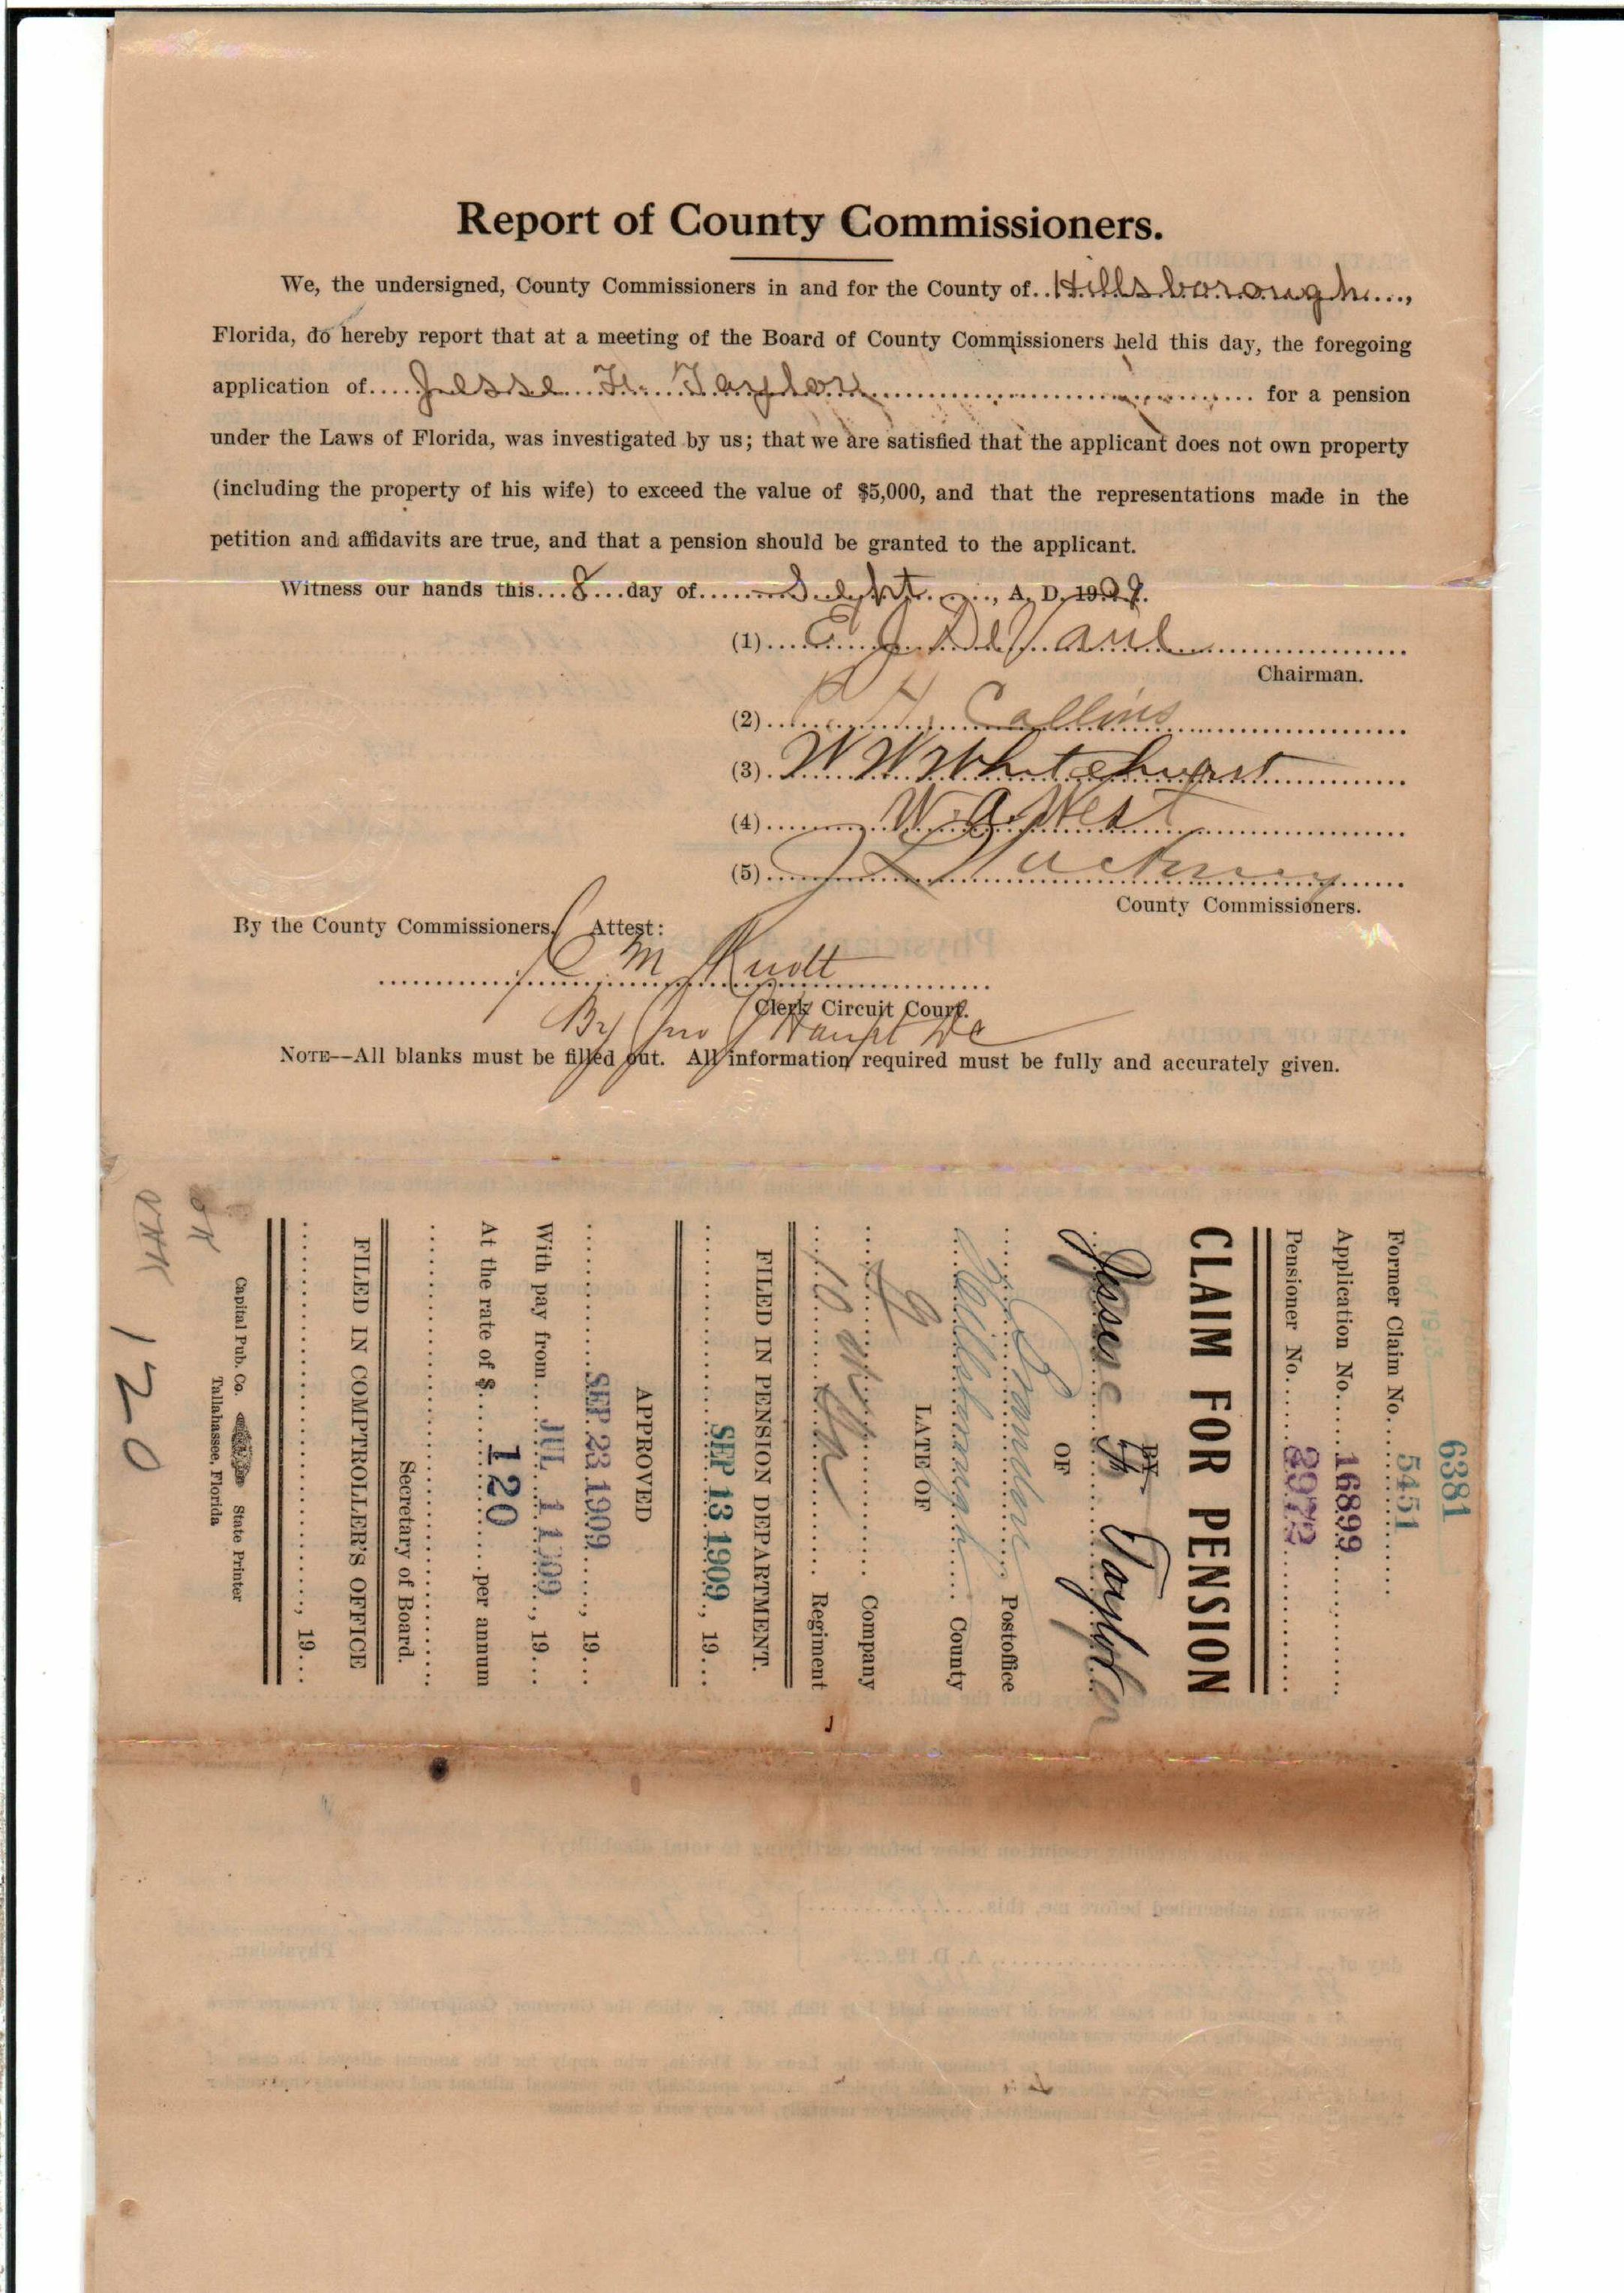 Report of County Commissioners.
We, the undersigned, County Commissioners in and for the County of..Hillsborough....,
Florida, do hereby report that at a meeting of the Board of County Commissioners held this day, the foregoing
application of....Jesse H. Taylor.................... for a pension
under the Laws of Florida, was investigated by us; that we are satisfied that the applicant does not own property
(including the property of his wife) to exceed the value of $5,000, and that the representations made in the
petition and affidavits are true, and that a pension should be granted to the applicant.
Witness our hands this...8...day of........Sept......, A. D. 1909.
(1)....E. J. DeVane....................
Chairman.
(2).... H. Collins....................
(3).W W Whitehurst....................
(4)........W. A. West....................
(5)....................
County Commissioners.
By the County Commissioners. Attest:
M Knott
Clerk Circuit Court.
By Jno Haupt DC
NOTE--All blanks must be filled out. All information required must be fully and accurately given.
6381
Former Claim No. 5451
Application No. 16899
Pensioner No. 2972
CLAIM FOR PENSION
BY
Jesse H Taylor
OF
Brandon Postoffice
Hillsborough County
LATE OF
G Company
10 Regiment
FILED IN PENSION DEPARTMENT.
SEP 13 1909, 19...
APPROVED
SEP 23 1909, 19...
With pay from JUL 1 1909, 19...
At the rate of $ 120 per annum
Secretary of Board.
FILED IN COMPTROLLER'S OFFICE
, 19...
Capital Pub. Co. State Printer
Tallahassee, Florida
OK
120